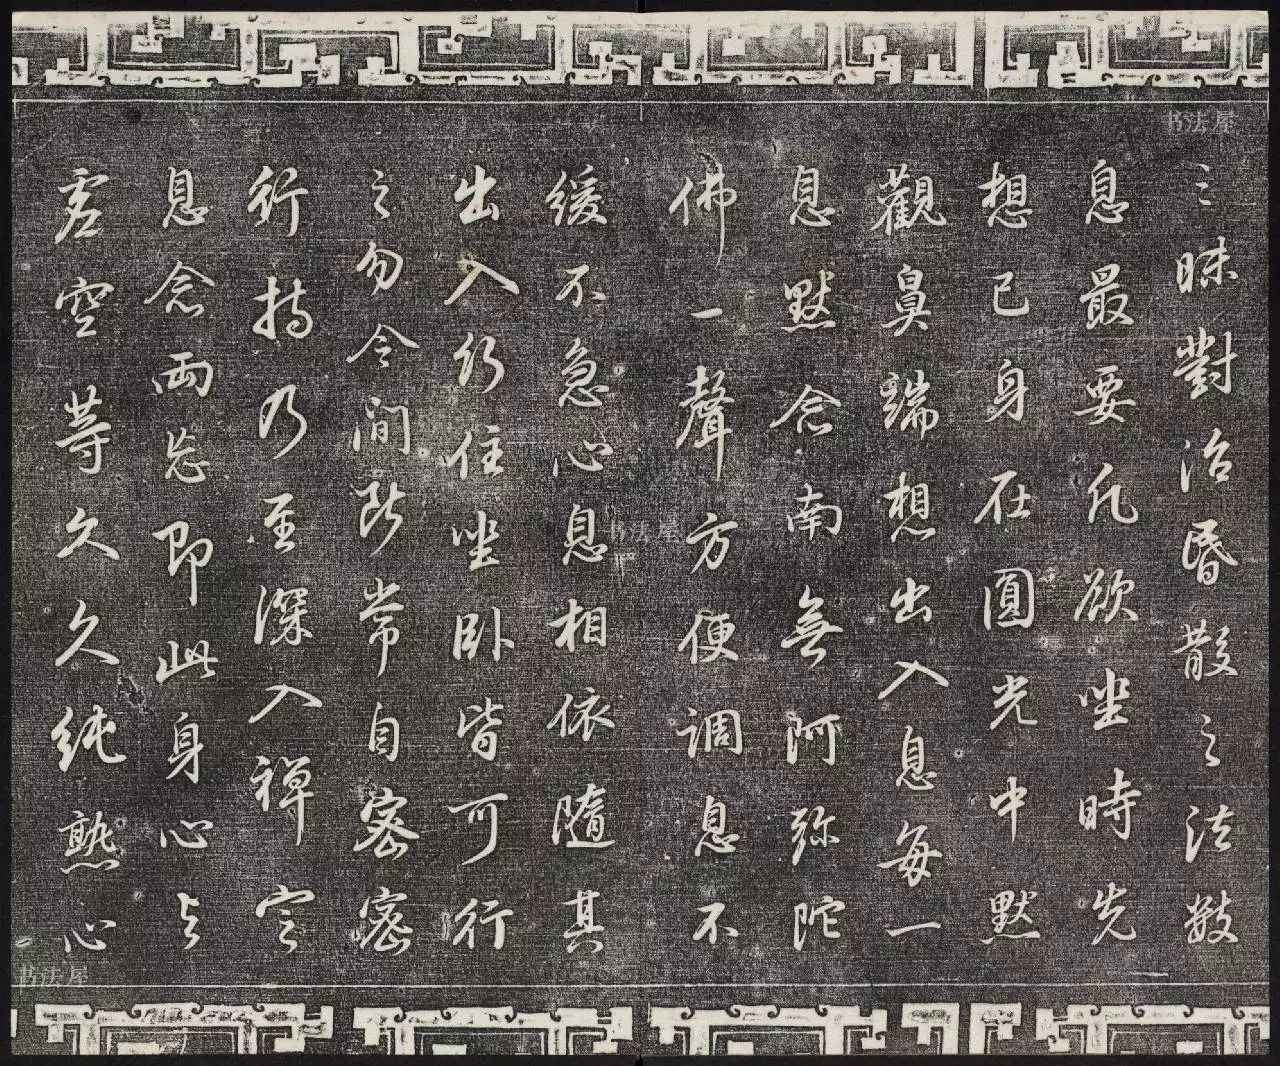 三昧對治昏散之法數
息最要凡欲坐時先
想己身在圓光中默
觀鼻端想出入息每一
息默念南無阿弥陀
佛一聲方便調息不
緩不急心息相依隨其
出入行住坐卧皆可行
之勿令間断常自密密
行持乃至深入禅定
息念兩忘即此身心与
虚空等久久纯熟心
书法屋
书法屋
书法屋